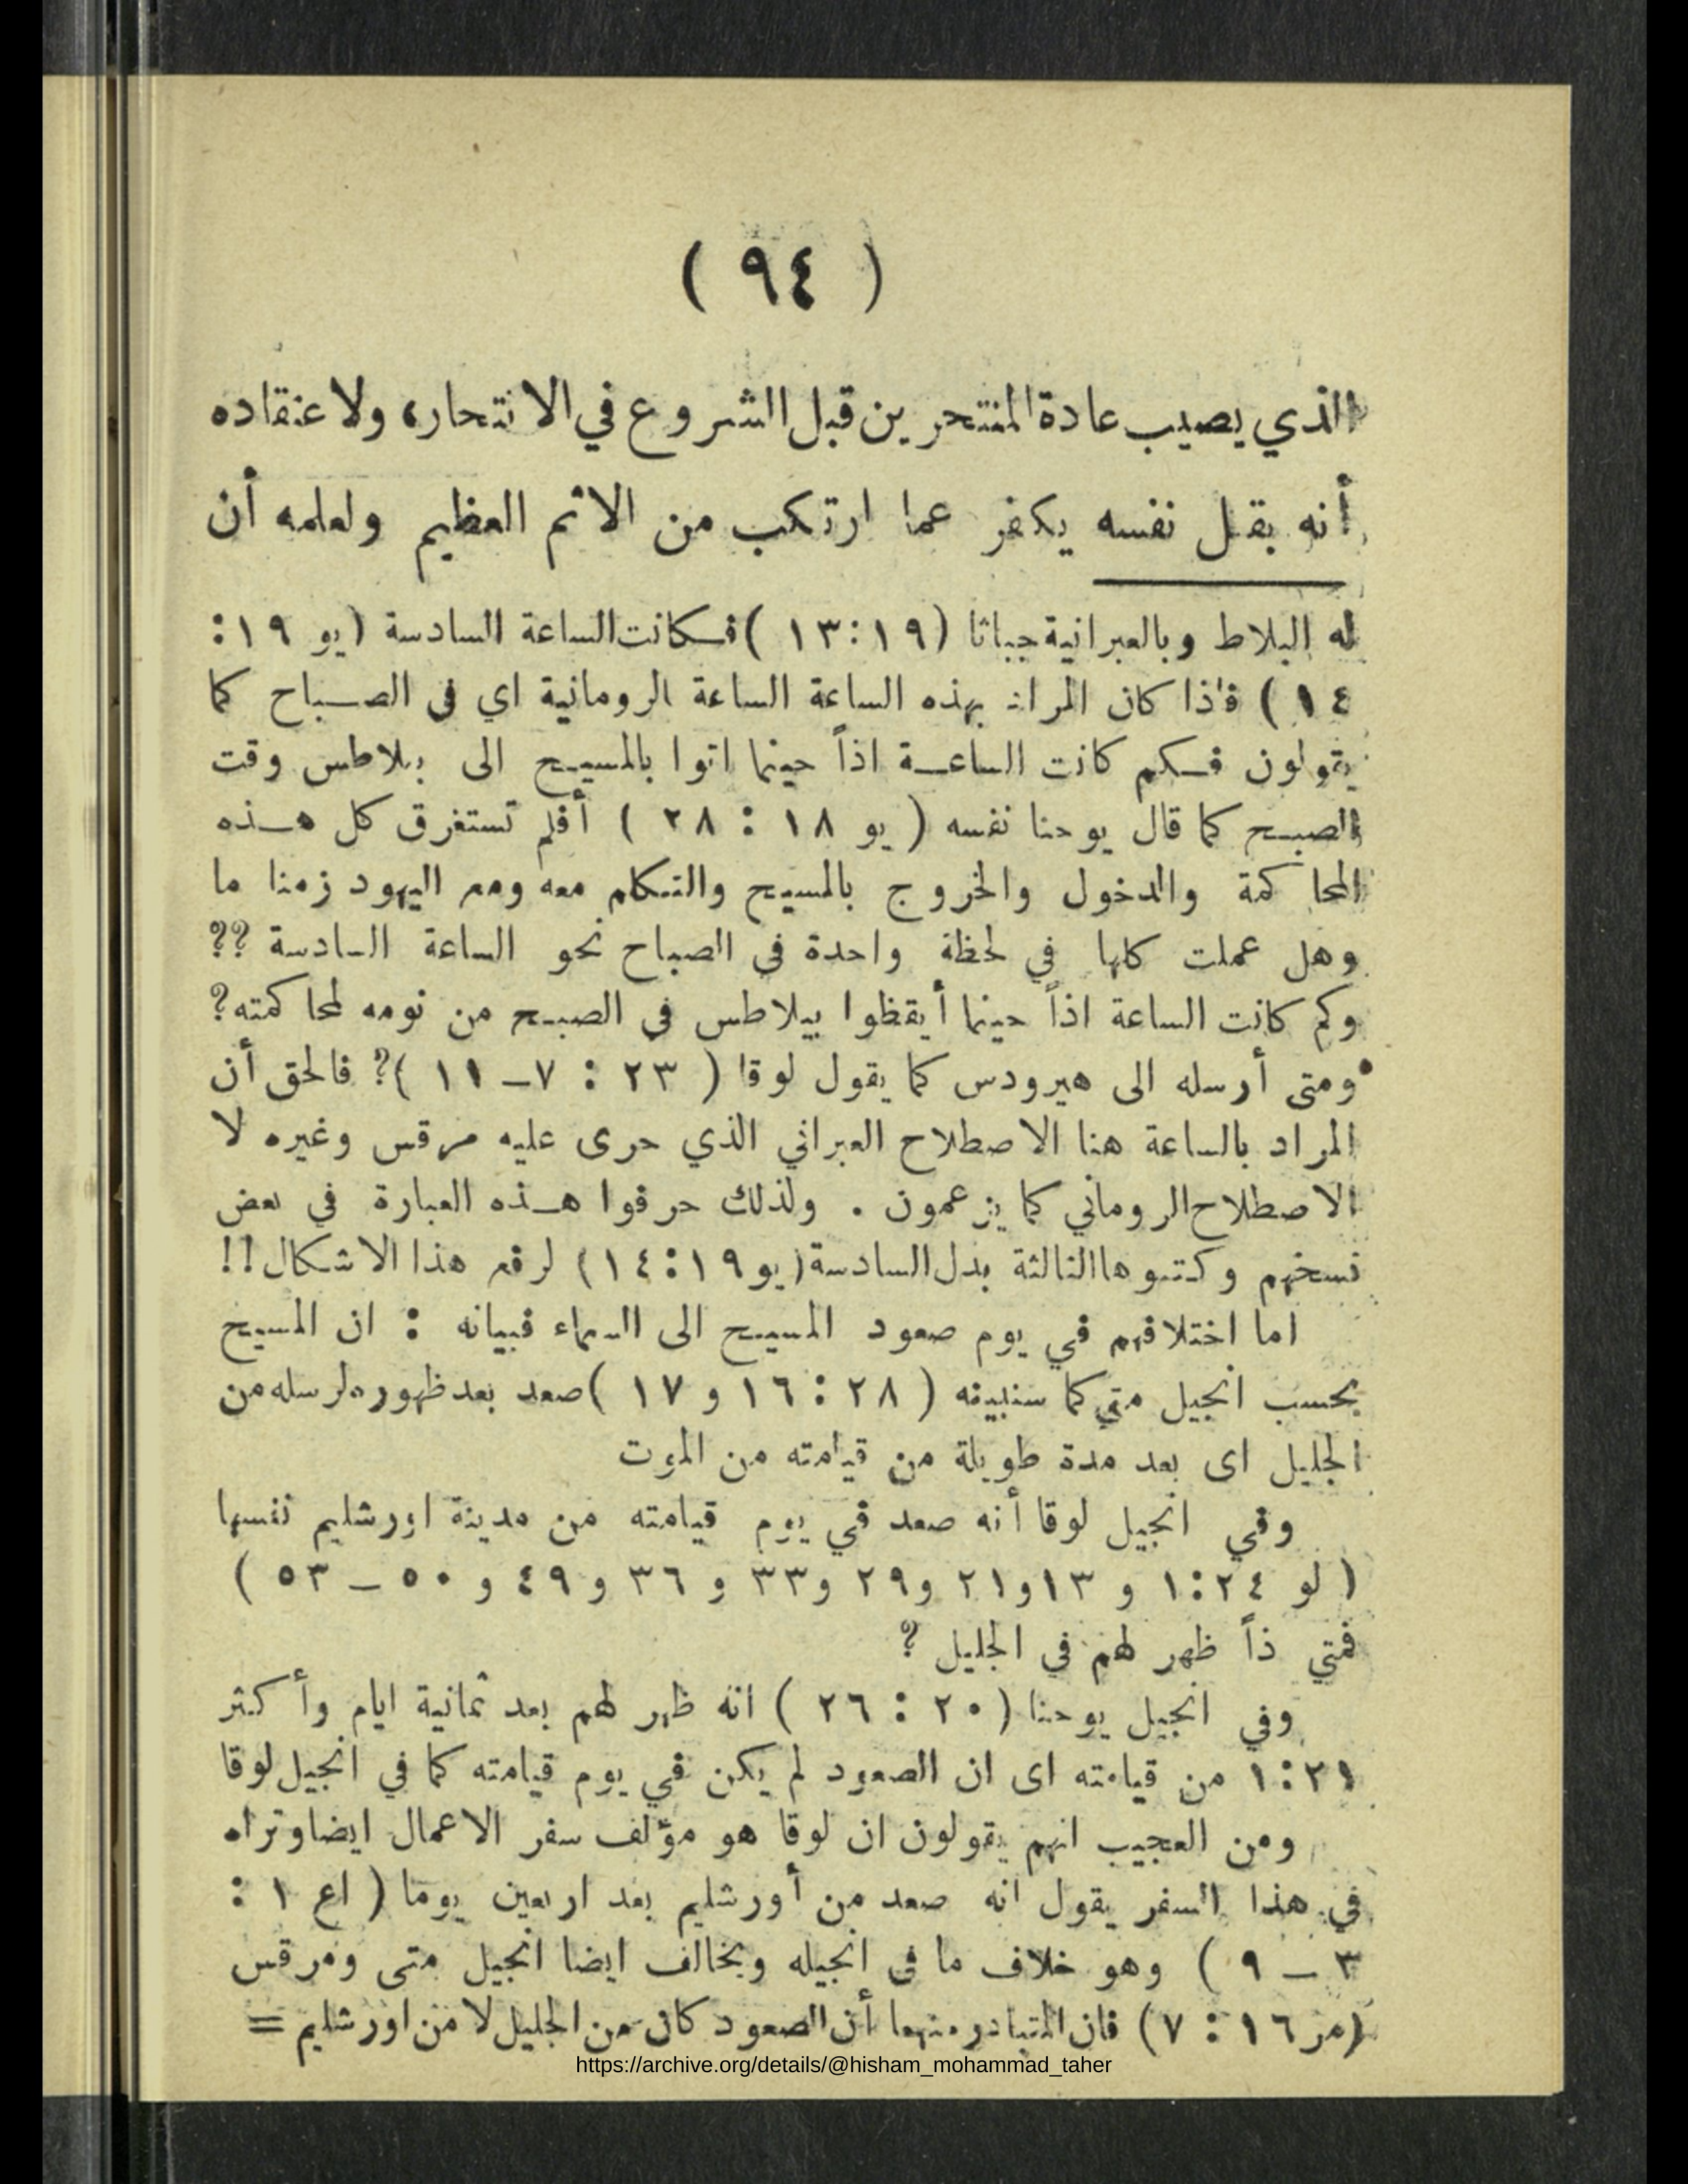 ( ٩٤ )
الذي يصيب عادة المنتحرين قبل الشروع في الانتحار، ولاعتقاده
أنه بقتل نفسه يكفر عما ارتكب من الاثم العظيم ولعلمه أن
له البلاط وبالعبرانية جباثا (١٩:١٣) فكانت الساعة السادسة (يو ١٩:
١٤ ) فاذا كان المراد بهذه الساعة الساعة الرومانية اي في الصباح كما
يقولون فكم كانت الساعة اذاً حينما اتوا بالمسيح الى بيلاطس وقت
الصبح كما قال يوحنا نفسه ( يو ١٨ : ٢٨ ) أفلم تستغرق كل هذه
المحاكمة والدخول والخروج بالمسيح والتكلم معه ومع اليهود زمنا ما
وهل عملت كلها في لحظة واحدة في الصباح نحو الساعة السادسة ??
وكم كانت الساعة اذاً حينما أيقظوا بيلاطس في الصبح من نومه لمحاكمته?
ومتى أرسله الى هيرودس كما يقول لوقا ( ٢٣ : ٧ـ ١١ )? فالحق أن
المراد بالساعة هنا الاصطلاح العبراني الذي جرى عليه مرقس وغيره لا
الاصطلاح الروماني كما يزعمون . ولذلك حرفوا هذه العبارة في بعض
نسخهم وكتبوها الثالثة بدل السادسة (يو ١٩:١٤) لرفع هذا الاشكال!!
اما اختلافهم في يوم صعود المسيح الى السماء فبيانه : ان المسيح
بحسب انجيل متي كما سنبينه ( ٢٨ : ١٦ و ١٧ ) صعد بعد ظهوره لرسله من
الجليل اى بعد مدة طويلة من قيامته من الموت
وفي انجيل لوقا أنه صعد في يوم قيامته من مدينة اورشليم نفسها
( لو ٢٤:١ و ١٣و٢١ و٢٩ و٣٣ و ٣٦ و ٤٩ و ٥٠ ـ ٥٣ )
فمتي ذاً ظهر لهم في الجليل ?
وفي انجيل يوحنا ( ٢٠ : ٢٦ ) انه ظهر لهم بعد ثمانية ايام وأكثر
٢١:١ من قيامته اى ان الصعود لم يكن في يوم قيامته كما في انجيل لوقا
ومن العجيب انهم يقولون ان لوقا هو مؤلف سفر الاعمال ايضا وتراه
في هذا السفر يقول انه صعد من أورشليم بعد اربعين يوما ( اع ١ :
٣ ـ ٩ ) وهو خلاف ما في انجيله ويخالف ايضا انجيل متى ومرقس
(مر ١٦ : ٧) فان المتبادر منهما أن الصعود كان من الجليل لا من اورشليم =
https://archive.org/details/@hisham_mohammad_taher